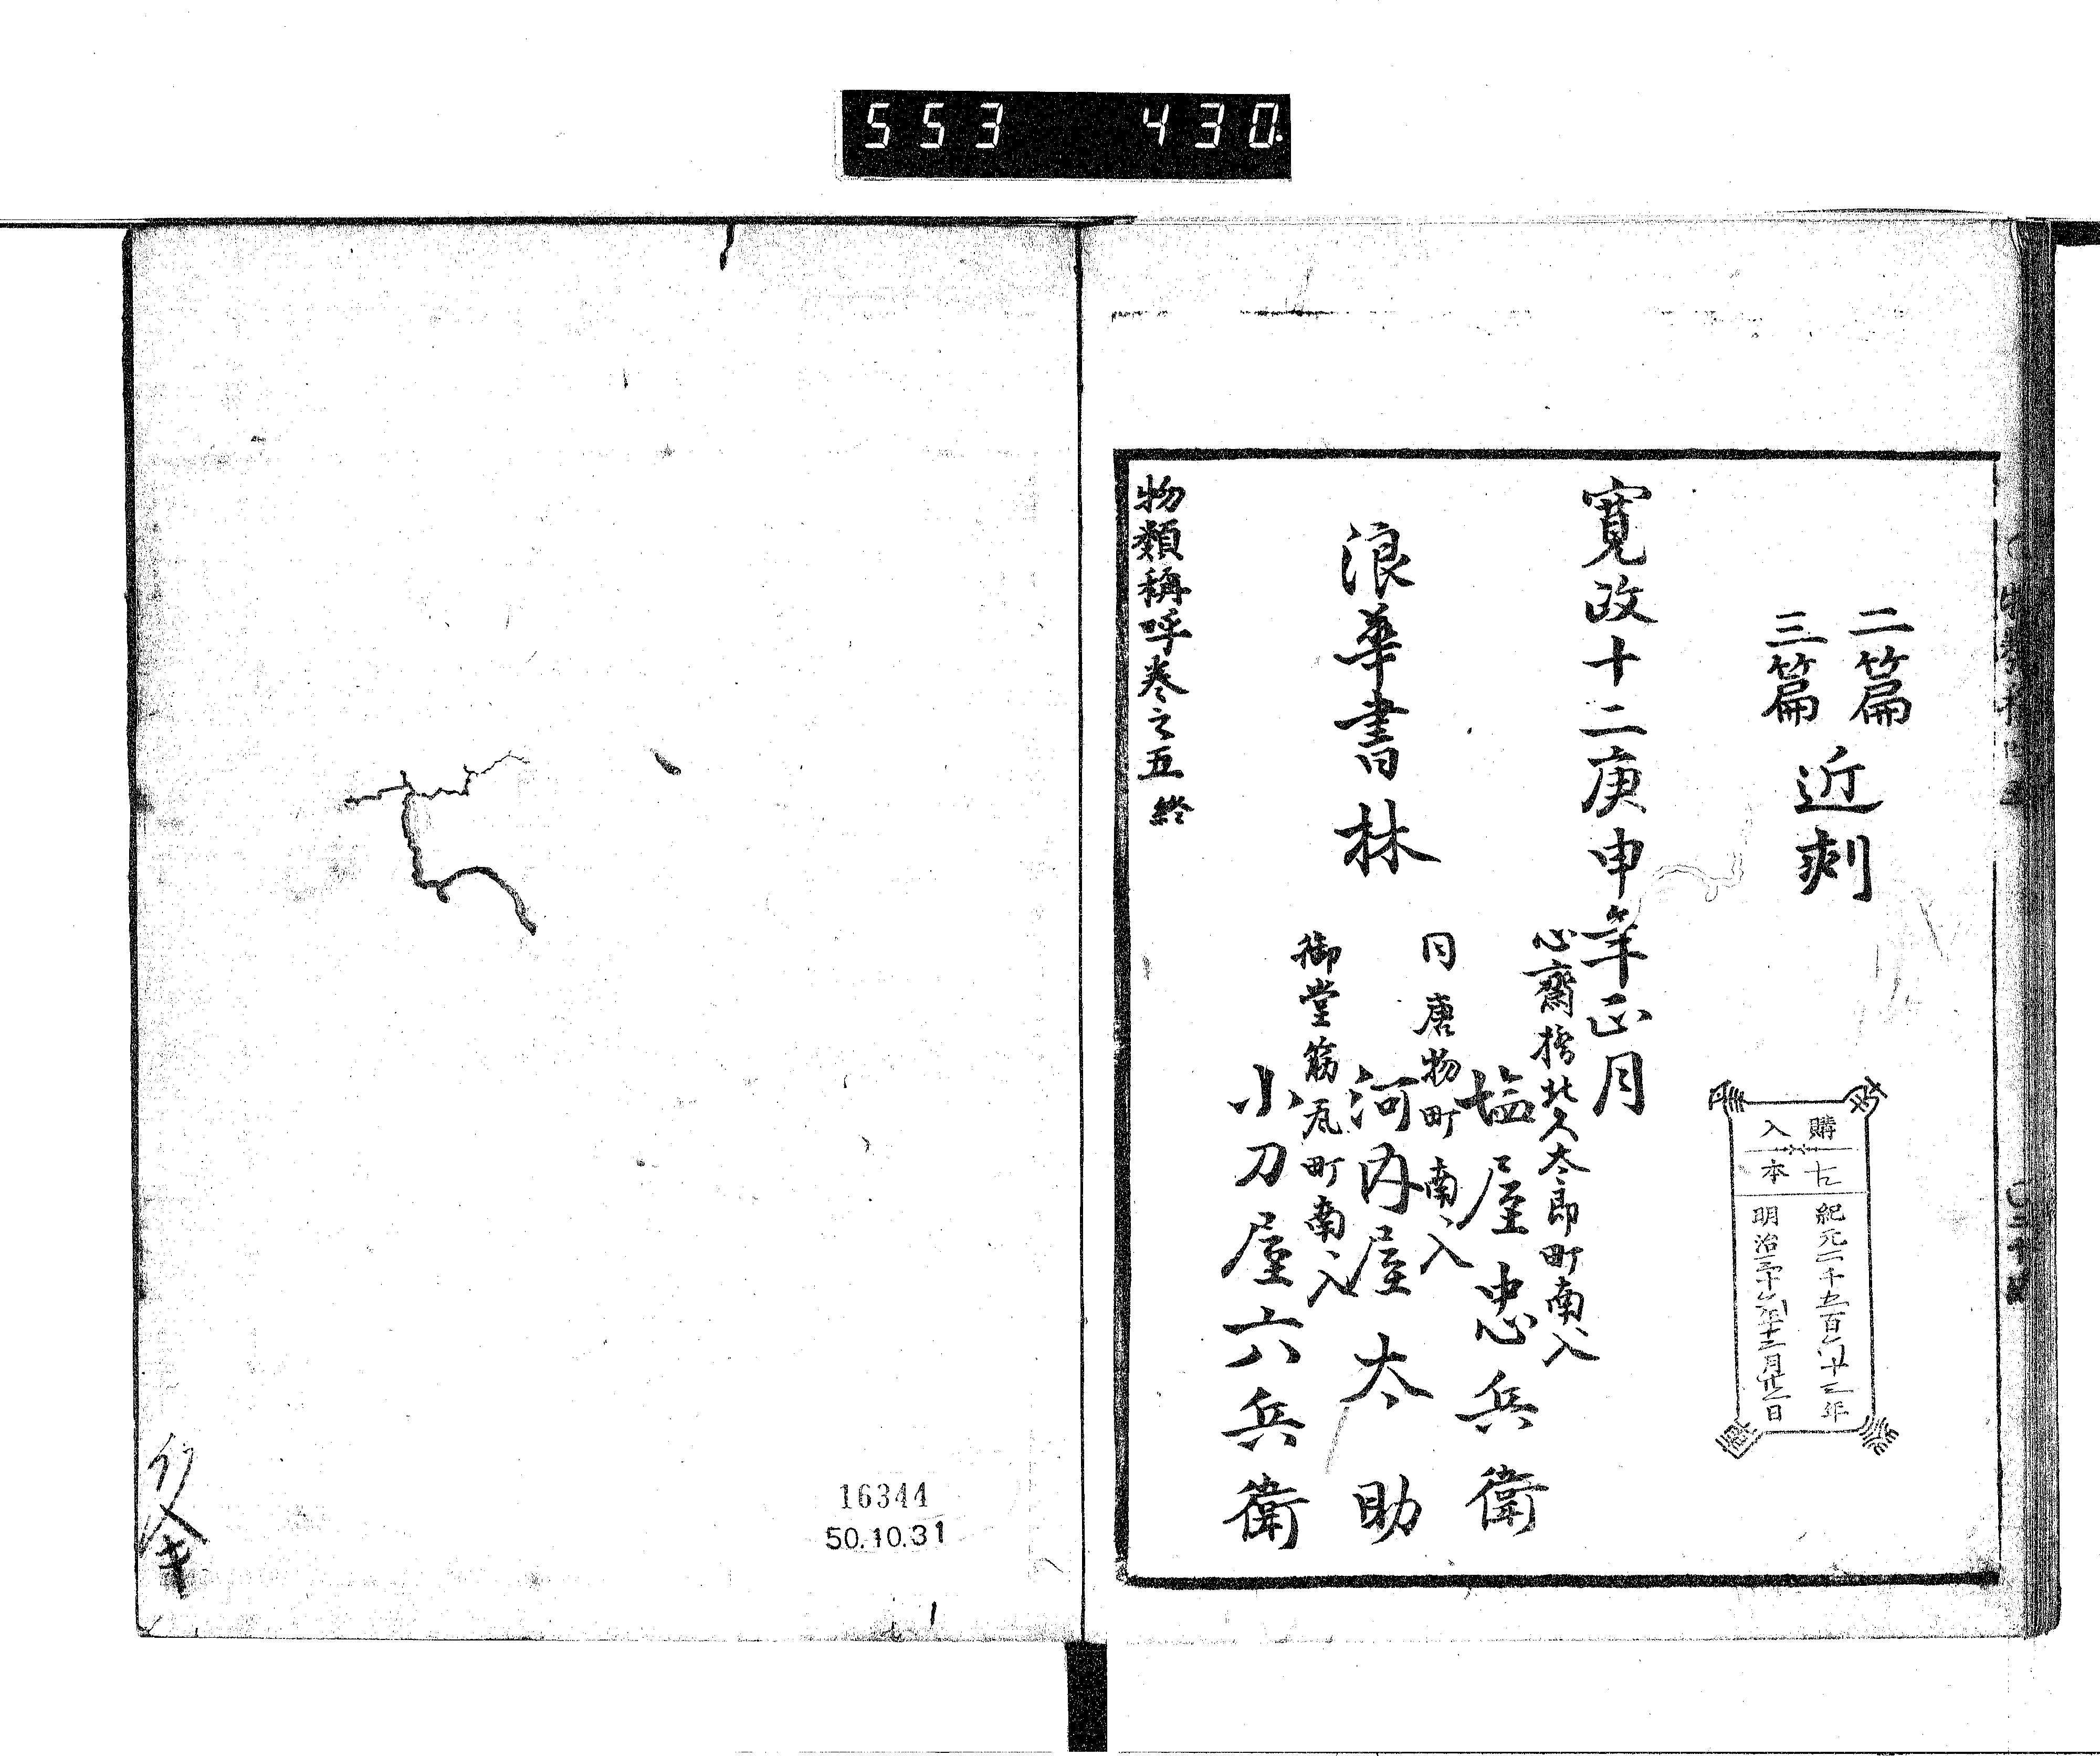 553 430
二篇
三篇
近刻
寛政十二庚申年正月
浪華書林
心齋橋北久太郎町南ヘ入
塩屋忠兵衛
同唐物町南ヘ入
河内屋太助
御堂筋瓦町南ヘ入
小刀屋六兵衛
物類称呼巻之五終
購入
古本
紀元二千五百六十三年
明治三十六年十二月廿二日
16344
50.10.31